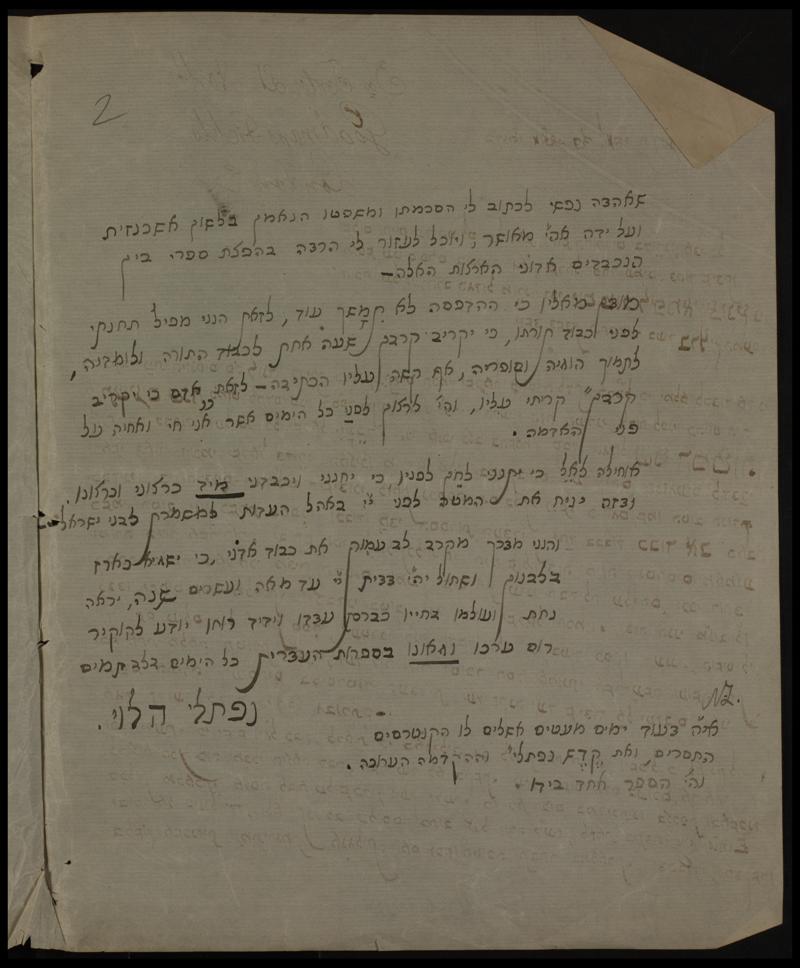 2
שאהצה נפשי לכתוב לי הסכמתו ומשפטו הנאמן בלשון אשכנזית
ועל ידה אהי׳ מאושר, ויוכל לעזור לי הרבה בהפצת ספרי בין
הנכבדים אדוני הארצות האלה—
מובן מאליו כי ההדפסה לא תמשך עוד, לזאת הנני מפיל תחנתי
לפני כבוד תורתו, כי יקריב קרבן שעה אחת לכבוד התורה ולומדיה,
לתמוך הוגיה וסופריה, אף קשה עליו הכתיבה— לזאת אדם כי יקריב
קרבן״ קריתי עליו, והי׳ לרצון לפני כל הימים אשר אני חי ואחיה על
פני האדמה.
אוחילה לאל כי יתנני לחן לפניו כי יחנני ויכבדני מיד כרצוני וכרצונו.
ובזה יניח את המטה לפני ה׳ באהל העדות למשמרת לבני ישראל
והנני מברך מקרב לב עמוק את כבוד אדני, כי ישגיא כארז
בלבנון ושתול יהי׳ בבית ה׳ עד מאה ועשרים שנה, יראה
נחת ועולמו בחייו כברכת עבדו וידיד רוחו יודע להוקיר
רום ערכו וגאונו בספרות העברית כל הימים בלב תמים
נפתלי הלוי.
N.
אי״ה בעוד ימים מעטים אשלים לו הקונטרסים
החסרים ואת קדש נפתלי״ וההקדמה הערוכה.
והי׳ הספר אחד בידו.